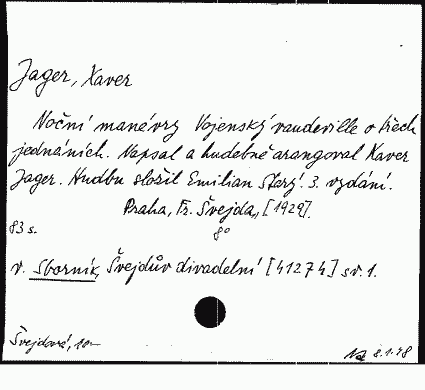 Jager, Xaver
Noční manévry Vojenský vaudeville o třech
jednáních. Napsal a hudebně arangoval Xaver
Jager. Hudbu složil Emilian Starý. 3. vydání.
Praha, Fr. Švejda, [1929].
83 s. 8°
v. Sborník, Švejdův divadelní [41274] sv. 1.
Švejdová, 10-
8.1.48